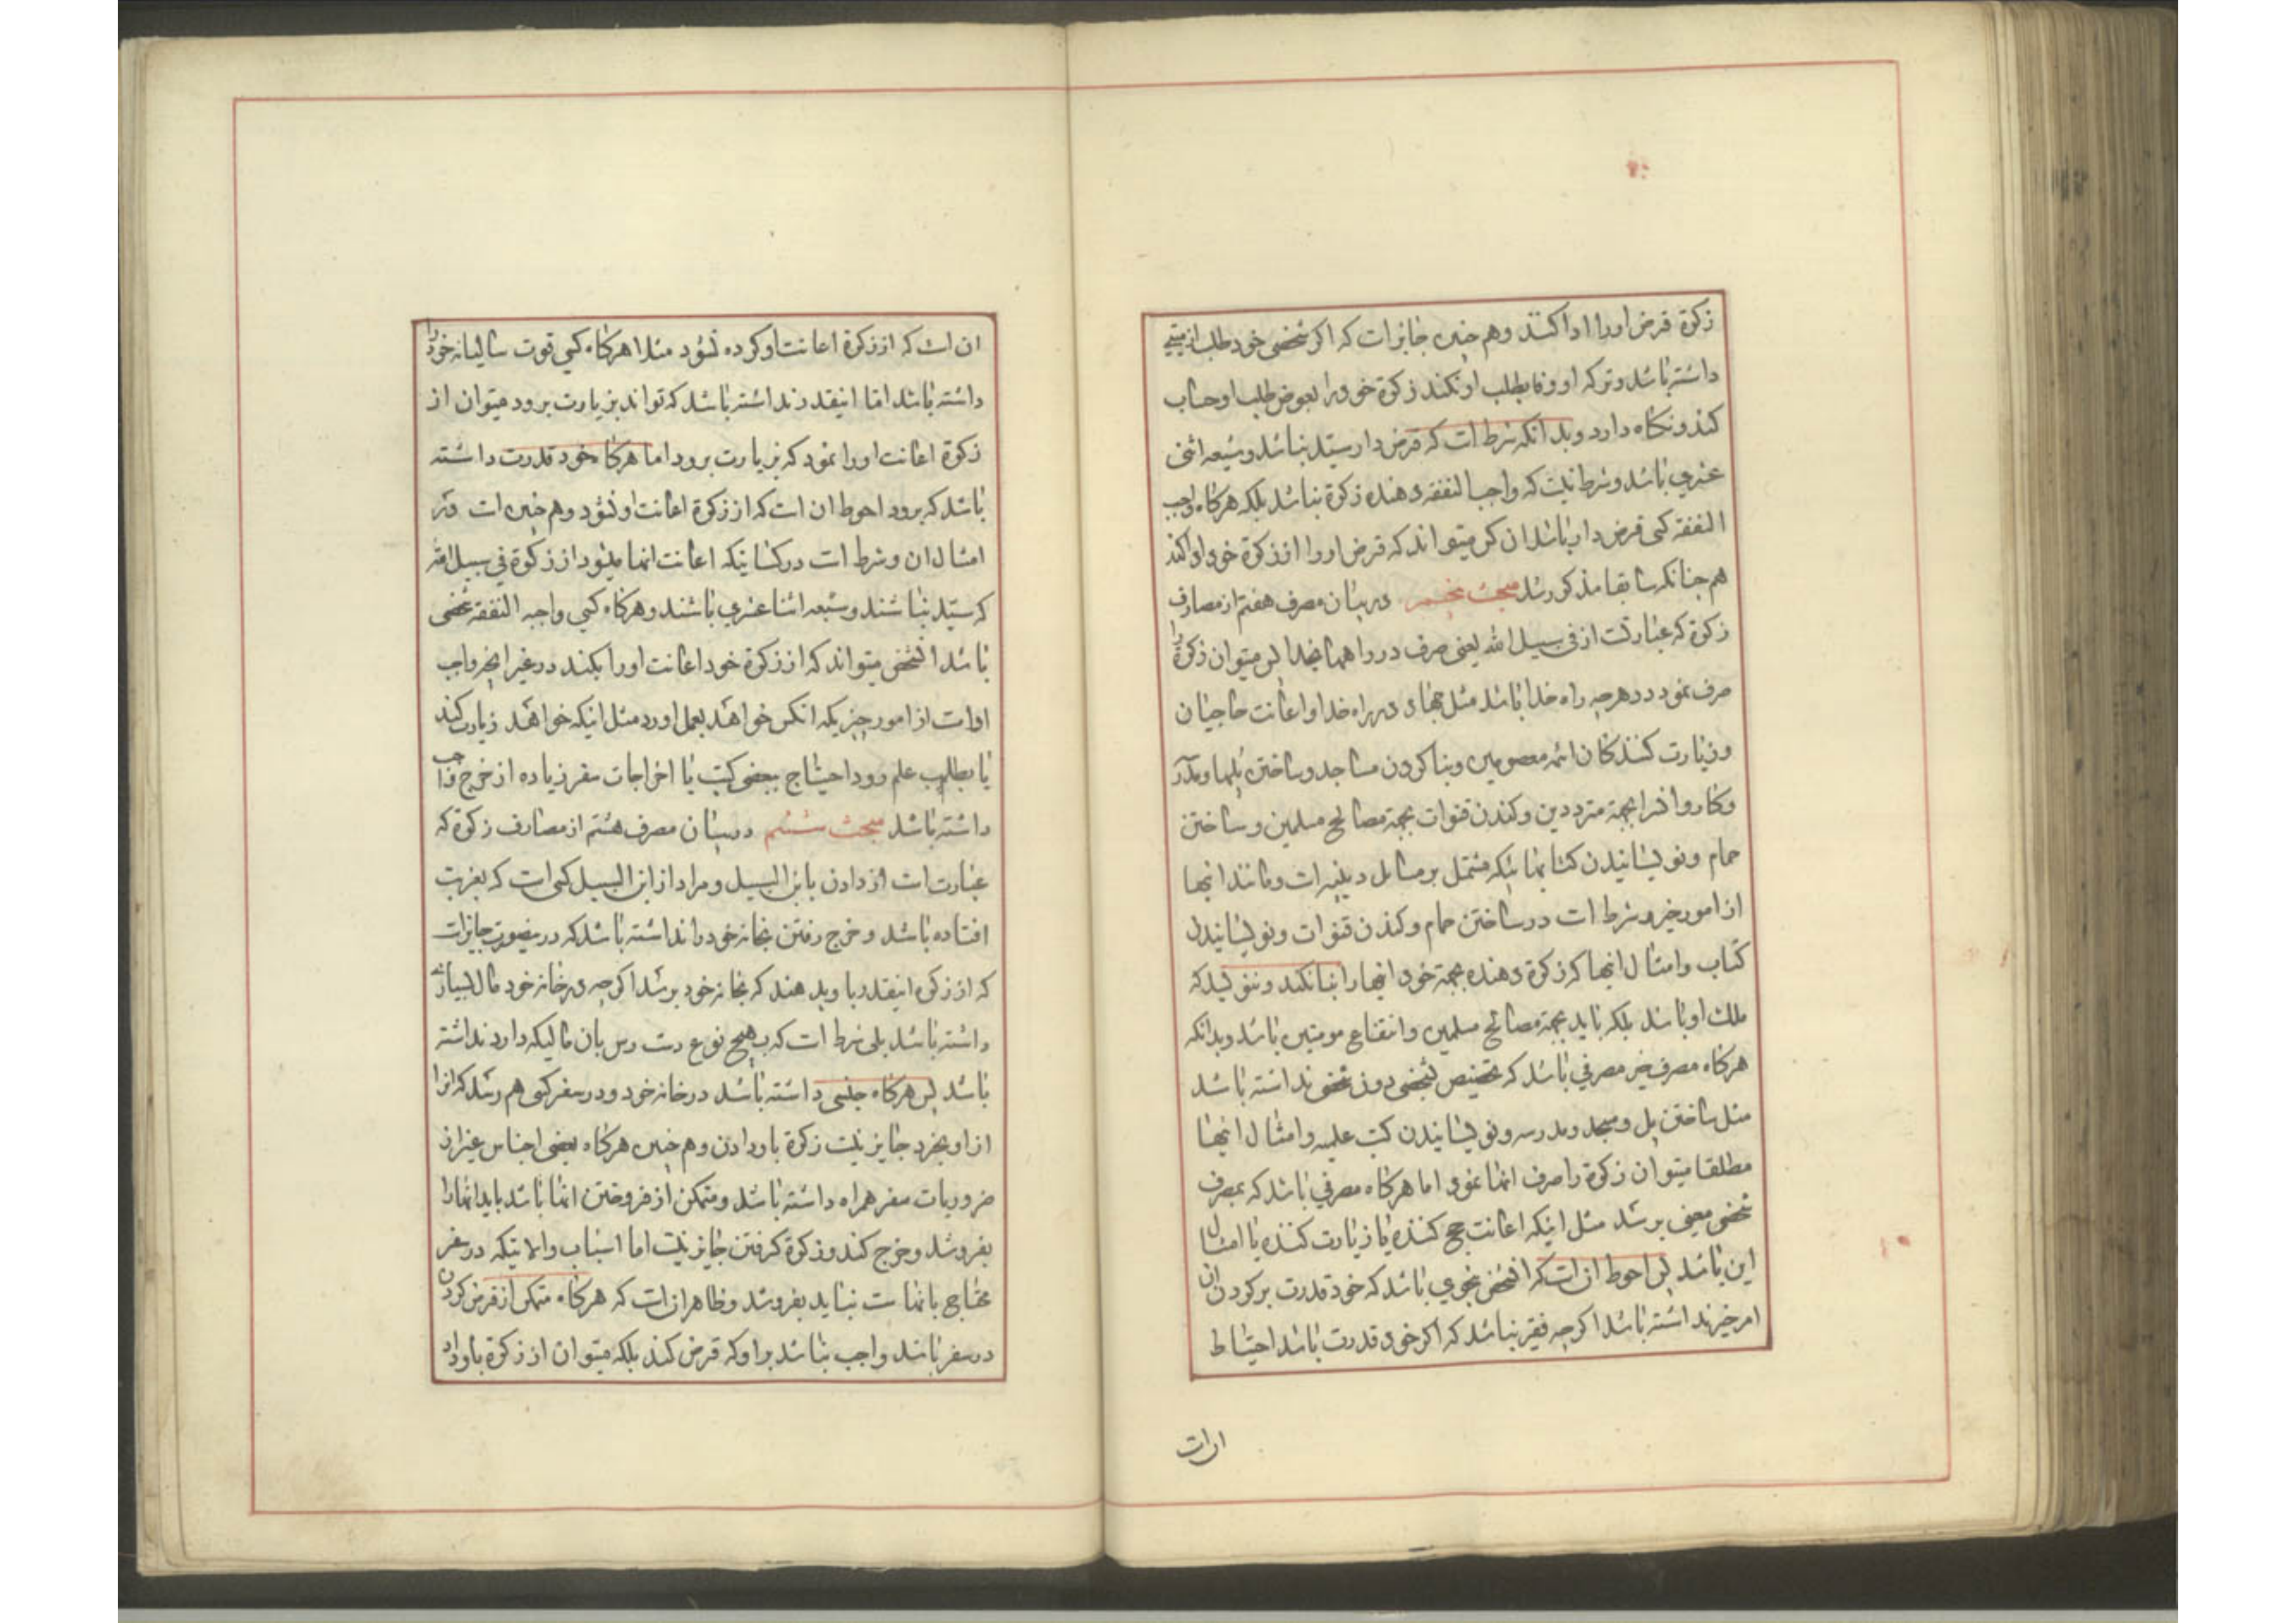 زکوة قرض اورا ادا کنند وهم چنین جایز است که اکر شخصی خود طلب از میتی
داشته باشد وترکه او وفا بطلب او نکند زکوة خود را بعوض طلب او حساب
کند ونکاه دارد وبدانکه شرط است که قرض دار سید نباشد وشیعه اثنی
عشری باشد وشرط نیست که واجب النفقه دهنده زکوة نباشد بلکه هرکاه واجب
النفقه کسی قرض دار باشد ان کس میتواند که قرض اورا از زکوة خود ادا کند
هم چنانکه سابقا مذکور شد مبحث پنجم در بیان مصرف هفتم از مصارف
زکوة که عبارتست از فی سبیل الله یعنی صرف در راههای خدا پس میتوان زکوة را
صرف نمود در هرچه راه خدا باشد مثل جهاد در راه خدا واعانت حاجیان
وزیارت کنندکان ائمه معصومین وبنا کردن مساجد وساختن پلها ومدارس
وکاروانسرا بجهة مترددین وکندن قنوات بجهة مصالح مسلمین وساختن
حمام ونویسانیدن کتابهائیکه مشتمل بر مسائل دینیه است ومانند اینها
از امور خیر وشرط است در ساختن حمام وکندن قنوات ونویسانیدن
کتاب وامثال اینها که زکوة دهنده بجهة خود اینها را بنا نکند وننویسد که
ملک او باشد بلکه باید بجهة مصالح مسلمین وانتفاع مومنین باشد وبدانکه
هرکاه مصرف خیر مصرفی باشد که تخصیص بشخصی دون شخصی نداشته باشد
مثل ساختن پل ومسجد ومدرسه ونویسانیدن کتب علمیه وامثال اینها
مطلقا میتوان زکوة را صرف انها نمود اما هرکاه مصرفی باشد که بمصرف
شخص معینی برسد مثل اینکه اعانت حج کننده یا زیارت کننده یا امثال
این باشد پس احوط ان است که انشخص بنحوی باشد که خود قدرت بر کردن ان
امر خیر نداشته باشد اکرچه فقیر نباشد که اکر خود قدرت باشد احتیاط
ان است
ان است که از زکوة اعانت او کرده نشود مثلا هرکاه کسی قوت سالیانه خود را
داشته باشد اما اینقدر نداشته باشد که تواند بزیارت برود میتوان از
زکوة اعانت اورا نمود که بزیارت برود اما هرکاه خود قدرت داشته
باشد که برود احوط ان است که از زکوة اعانت او نشود وهم چنین است در
امثال ان وشرط است در کسانیکه اعانت انها میشود از زکوة فی سبیل الله
که سید نباشند وشیعه اثنا عشری باشند وهرکاه کسی واجبه النفقه شخصی
باشد انشخص میتواند که از زکوة خود اعانت اورا بکند در غیر انچه واجب
او است از امور چیزیکه انکس خواهد بعمل اورد مثل اینکه خواهد زیارت کند
یا بطلب علم رود احتیاج ببعضی کتب یا اخراجات سفر زیاده از خرج واجب
داشته باشد مبحث ششم در بیان مصرف هشتم از مصارف زکوة که
عبارت است از دادن بابن السبیل ومراد از ابن السبیل کسی است که بغربت
افتاده باشد وخرج رفتن بخانه خود را نداشته باشد که در یصورت جایز است
که از زکوة اینقدر باو بدهند که بخانه خود برسد اکرچه در خانه خود مال بسیار
داشته باشد بلی شرط است که بهیچ نوع دست رس بان مالیکه دارد نداشته
باشد پس هرکاه جنسی داشته باشد در خانه خود ودر سفر کسی هم رسد که انرا
از او بخرد جایز نیست زکوة باو دادن وهم چنین هرکاه بعضی اجناس غیر از
ضروریات سفر همراه داشته باشد ومتمکن از فروختن انها باشد باید انها را
بفروشد وخرج کند وزکوة کرفتن جایز نیست اما اسباب والاتیکه در سفر
محتاج بانها ست نباید بفروشد وظاهر ان است که هرکاه متمکن از قرض کردن
در سفر باشد واجب نباشد بر او که قرض کند بلکه میتوان از زکوة باو داد